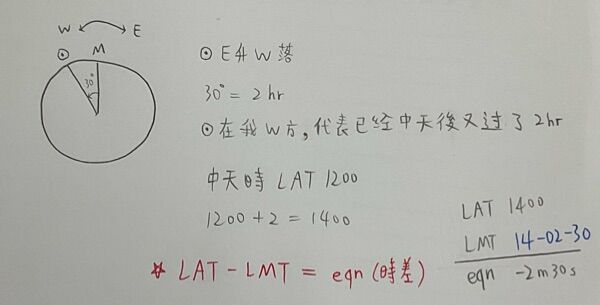 W E
⊙ M
30°
⊙ E升W落
30° = 2 hr
⊙在我W方,代表已经中天後又过了2hr
中天時 LAT 1200
1200 + 2 = 1400
LAT 1400
LMT 14-02-30
eqn -2m30s
* LAT - LMT = eqn (時差)